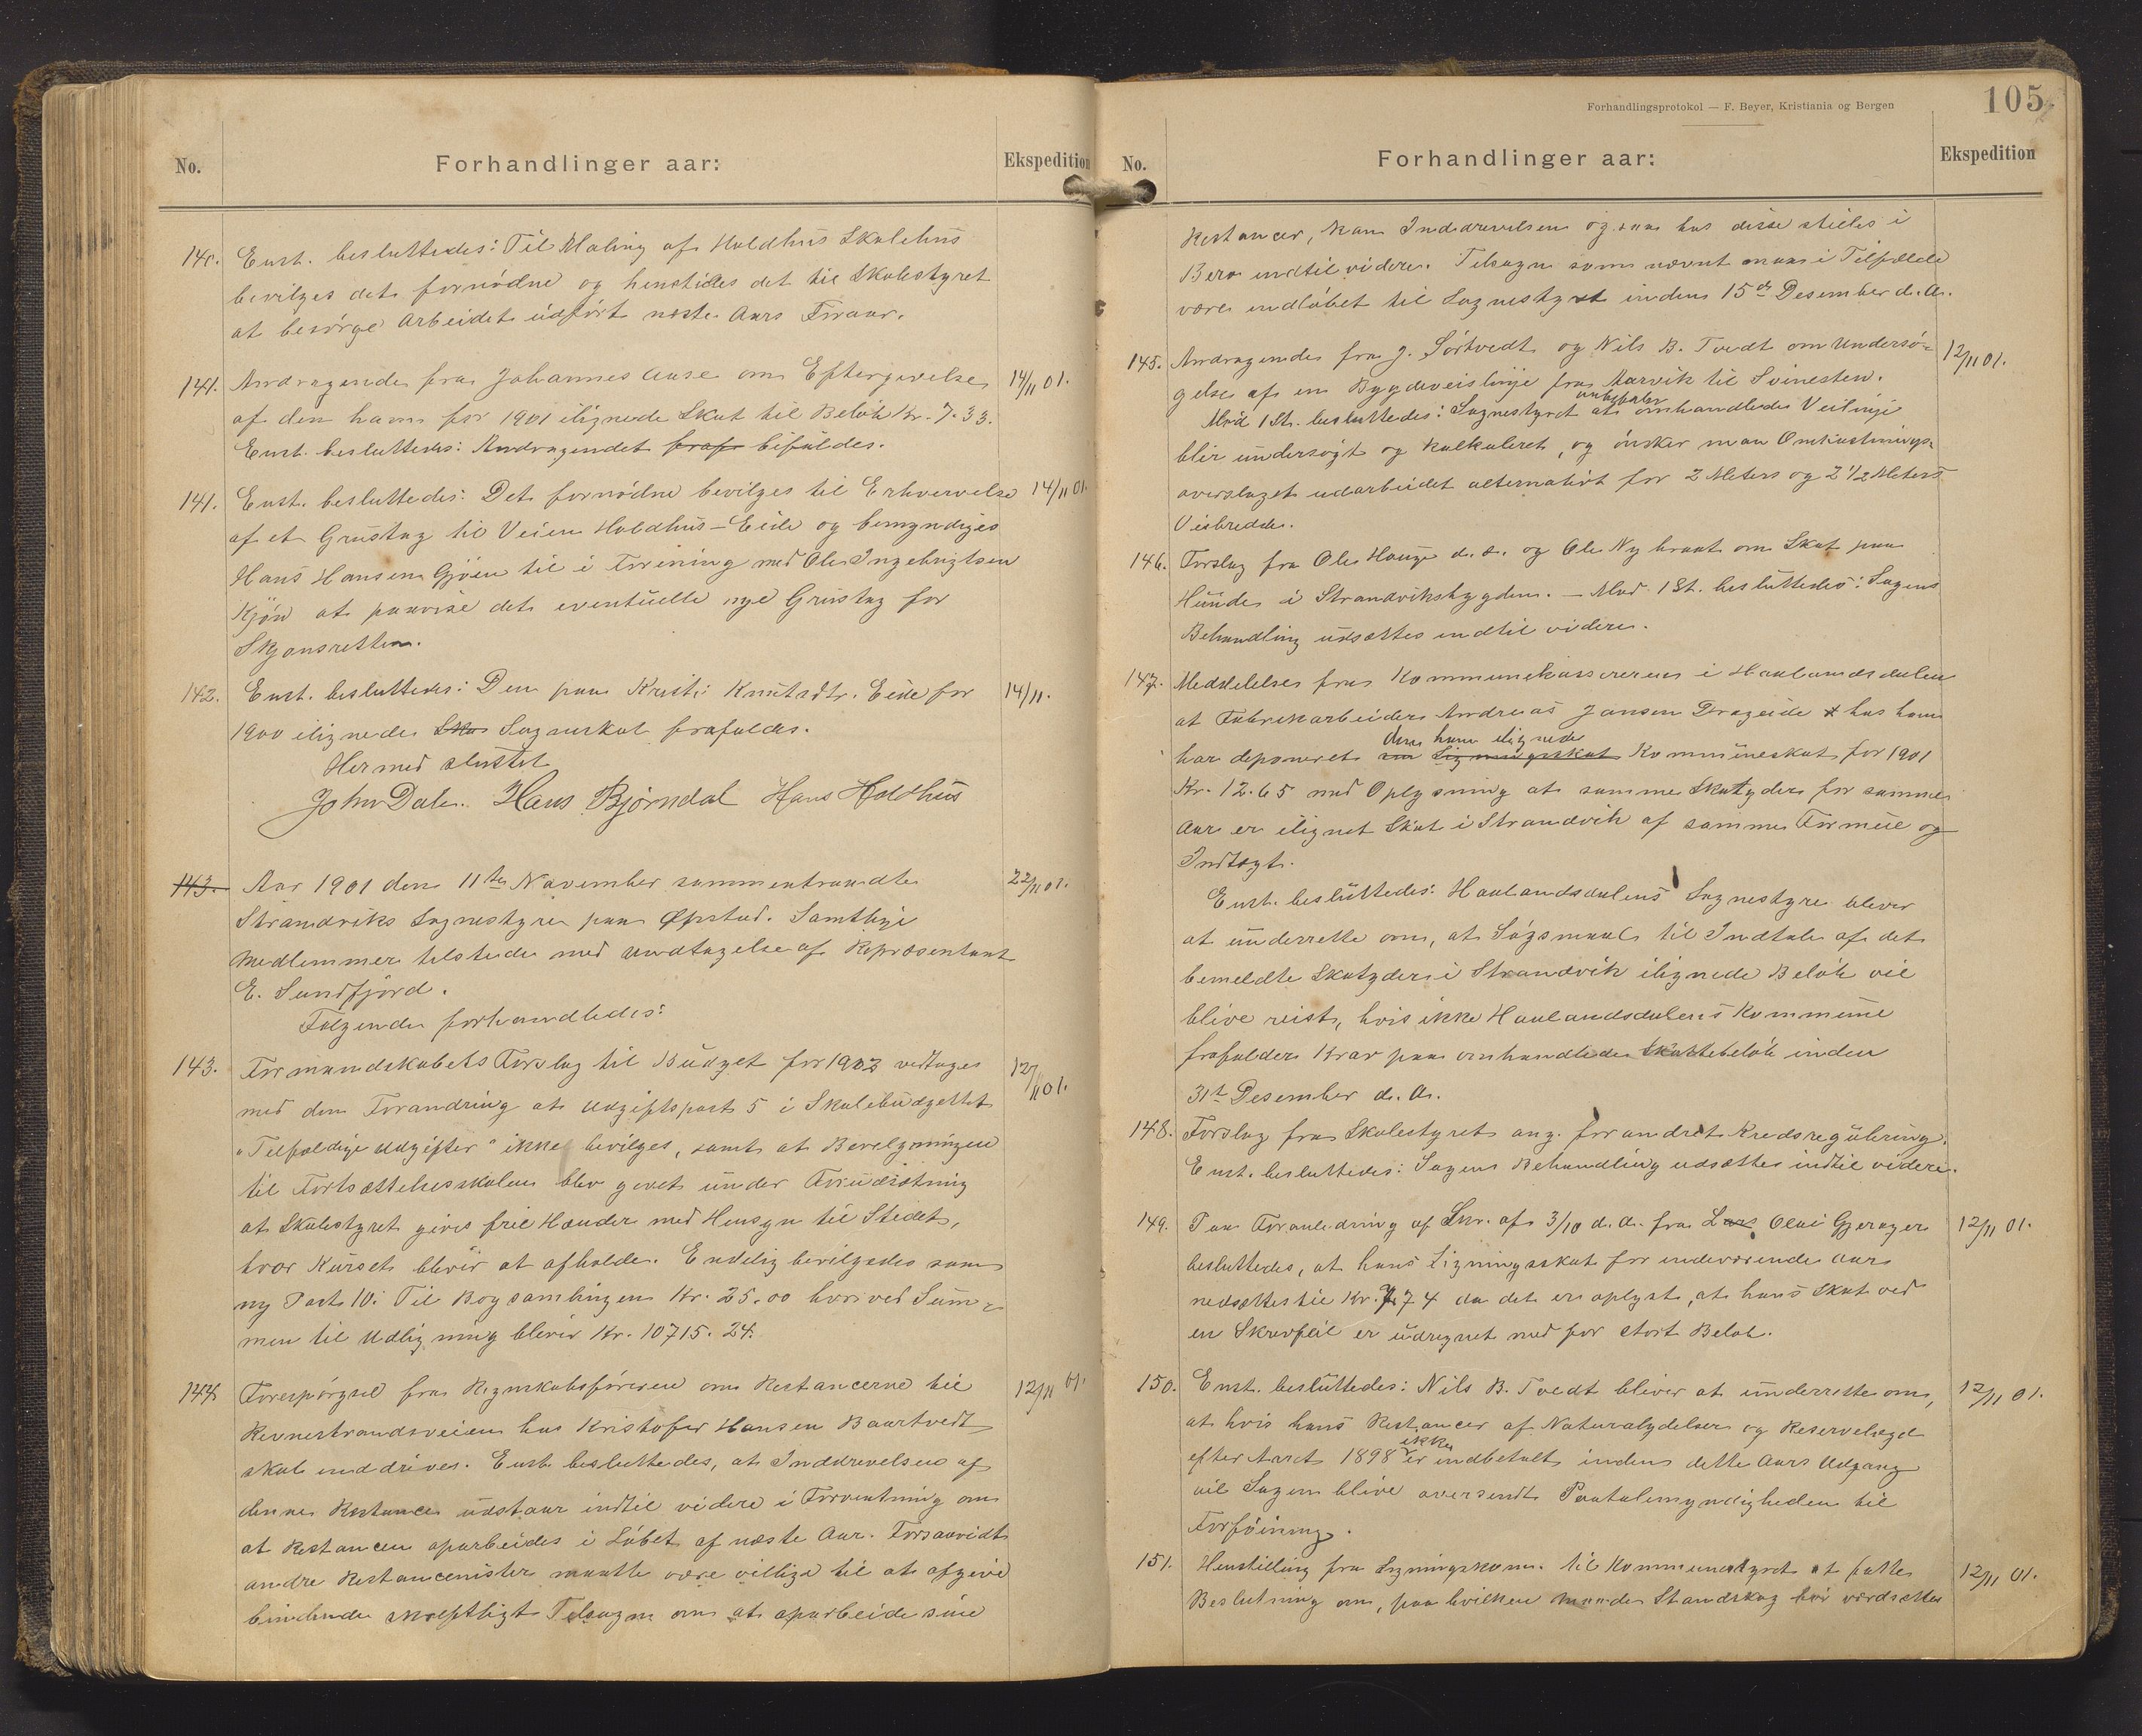 No.
Forhandlinger aar:
Ekspedition
140. Enst. besluttedes: Til Maling af Holdhus Skolehus
bevilges det fornødne og henstilles det til Skolestyret
at besørge Arbeidet udført næste Aars Foraar.
141. Andragende fra Johannes Aase om Eftergivelse 14/11 01.
af den ham for 1901 ilignede Skat til Beløb Kr. 7.33.
Enst. besluttedes: Andragendet fraf bifaldes.
141. Enst. besluttedes: Det fornødne bevilges til Erhvervelse 14/11 01.
af et Grustag til Veien Holdhus-Eide og bemyndiges
Hans Hansen Gjøen til i Forening med Ole Ingebrigtsen
Kjøn at paavise det eventuelle nye Grustag for
Skjønsretten.
142. Enst. besluttedes: Den paa Kristi Knutsdtr. Eide for 14/11.
1900 ilignede Ska Sogneskat frafaldes.
Hermed sluttet
John Dale. Hans Bjørndal Hans Holdhus
143. Aar 1901 den 11te November sammentraadte 22/11 01.
Strandviks Sognestyre paa Øpstad. Samtlige
Medlemmer tilstede med Undtagelse af Repræsentant
E. Sundfjord.
Følgende forhandledes:
143. Formandskabets Forslag til Budget for 1902 vedtages 12/11 01.
med den Forandring at Udgiftspost 5 i Skolebudgettet
"Tilfældige Udgifter" ikke bevilges, samt at Bevilgningen
til Fortsættelsesskolen blev givet under Forudsætning
at Skolestyret gives frie Hænder med Hensyn til Stedet,
hvor Kurset bliver at afholde. Endelig bevilgedes som
ny Post 10: Til Bogsamlingen Kr. 25.00 hvorved Sum-
men til Udligning bliver Kr. 10715.24.
144 Forespørgsel fra Regnskabsføreren om Restancerne til 12/11 01.
Revnestrandsveien hos Kristofer Hansen Baartvedt
skal inddrives. Enst. besluttedes, at Inddrivelsen af
denne Restance udstaar indtil videre i Forventning om
at Restancen oparbeides i Løbet af næste Aar. Forsaavidt
andre Restancenister maatte være villige til at afgive
bindende skriftligt Tilsagn om at oparbeide sine
Forhandlingsprotokol — F. Beyer, Kristiania og Bergen
105
No.
Forhandlinger aar:
Ekspedition
Restancer, kan Inddrivelsen ogsaa hos disse stilles i
Bero indtil videre. Tilsagn som nævnt maa i Tilfælde
være indløbet til Sognestyret inden 15de Desember d.A.
145. Andragende fra J. Sørtvedt og Nils B. Tvedt om Undersø- 12/11 01.
gelse af en Bygdeveislinje fra Aarvik til Svinesten.
anbefaler
Mod 1 St. besluttedes: Sognestyret at omhandlede Veilinje
blir undersøgt og kalkuleret, og ønsker man Omkostnings-
overslaget udarbeidet alternativt for 2 Meters og 2 1/2 Meters
Veibredde.
146. Forslag fra Ole Hauge d.æ. og Ole Nybraat om Skat paa
Hunde i Strandviksbygden. – Mod 1 St. besluttedes: Sagens
Behandling udsættes indtil videre.
147. Meddelelse fra Kommunekassereren i Haalandsdalen
at Fabrikarbeider Andreas Jansen Drageide hos ham
den ham ilignede
har deponeret sin Ligningsskat Kommuneskat for 1901
Kr. 12.65 med Oplysning at samme Skatyder for samme
Aar er ilignet Skat i Strandvik af samme Formue og
Indtægt.
Enst. besluttedes: Haalandsdalens Sognestyre bliver
at underrette om, at Søgsmaal til Indtale af det
bemeldte Skatyder i Strandvik ilignede Beløb vil
blive reist, hvis ikke Haalandsdalens Kommune
frafalder Krav paa omhandlede Skattebeløb inden
31te Desember d.A.
148. Forslag fra Skolestyret ang. forandret Kredsregulering.
Enst. besluttedes: Sagens Behandling udsættes indtil videre.
149. Paa Foranledning af Skr. af 3/10 d.A. fra Lars Olai Gjerager 12/11 01.
besluttedes, at hans Ligningsskat for indeværende Aar
nedsættes til Kr. 7.74 da det er oplyst, at hans Skat ved
en Skrivfeil er udregnet med for stort Beløb.
150. Enst. besluttedes: Nils B. Tvedt bliver at underrette om, 12/11 01.
at hvis hans Restancer af Naturalydelser og Reservelægd
ikke
efter Aaret 1898 er indbetalt inden dette Aars Udgang
vil Sagen blive oversendt Paatalemyndigheden til
Forføining.
151. Henstilling fra Ligningskom. til Kommunestyret at fatte 12/11 01.
Beslutning om, paa hvilken Maade Standskog bør værdsættes